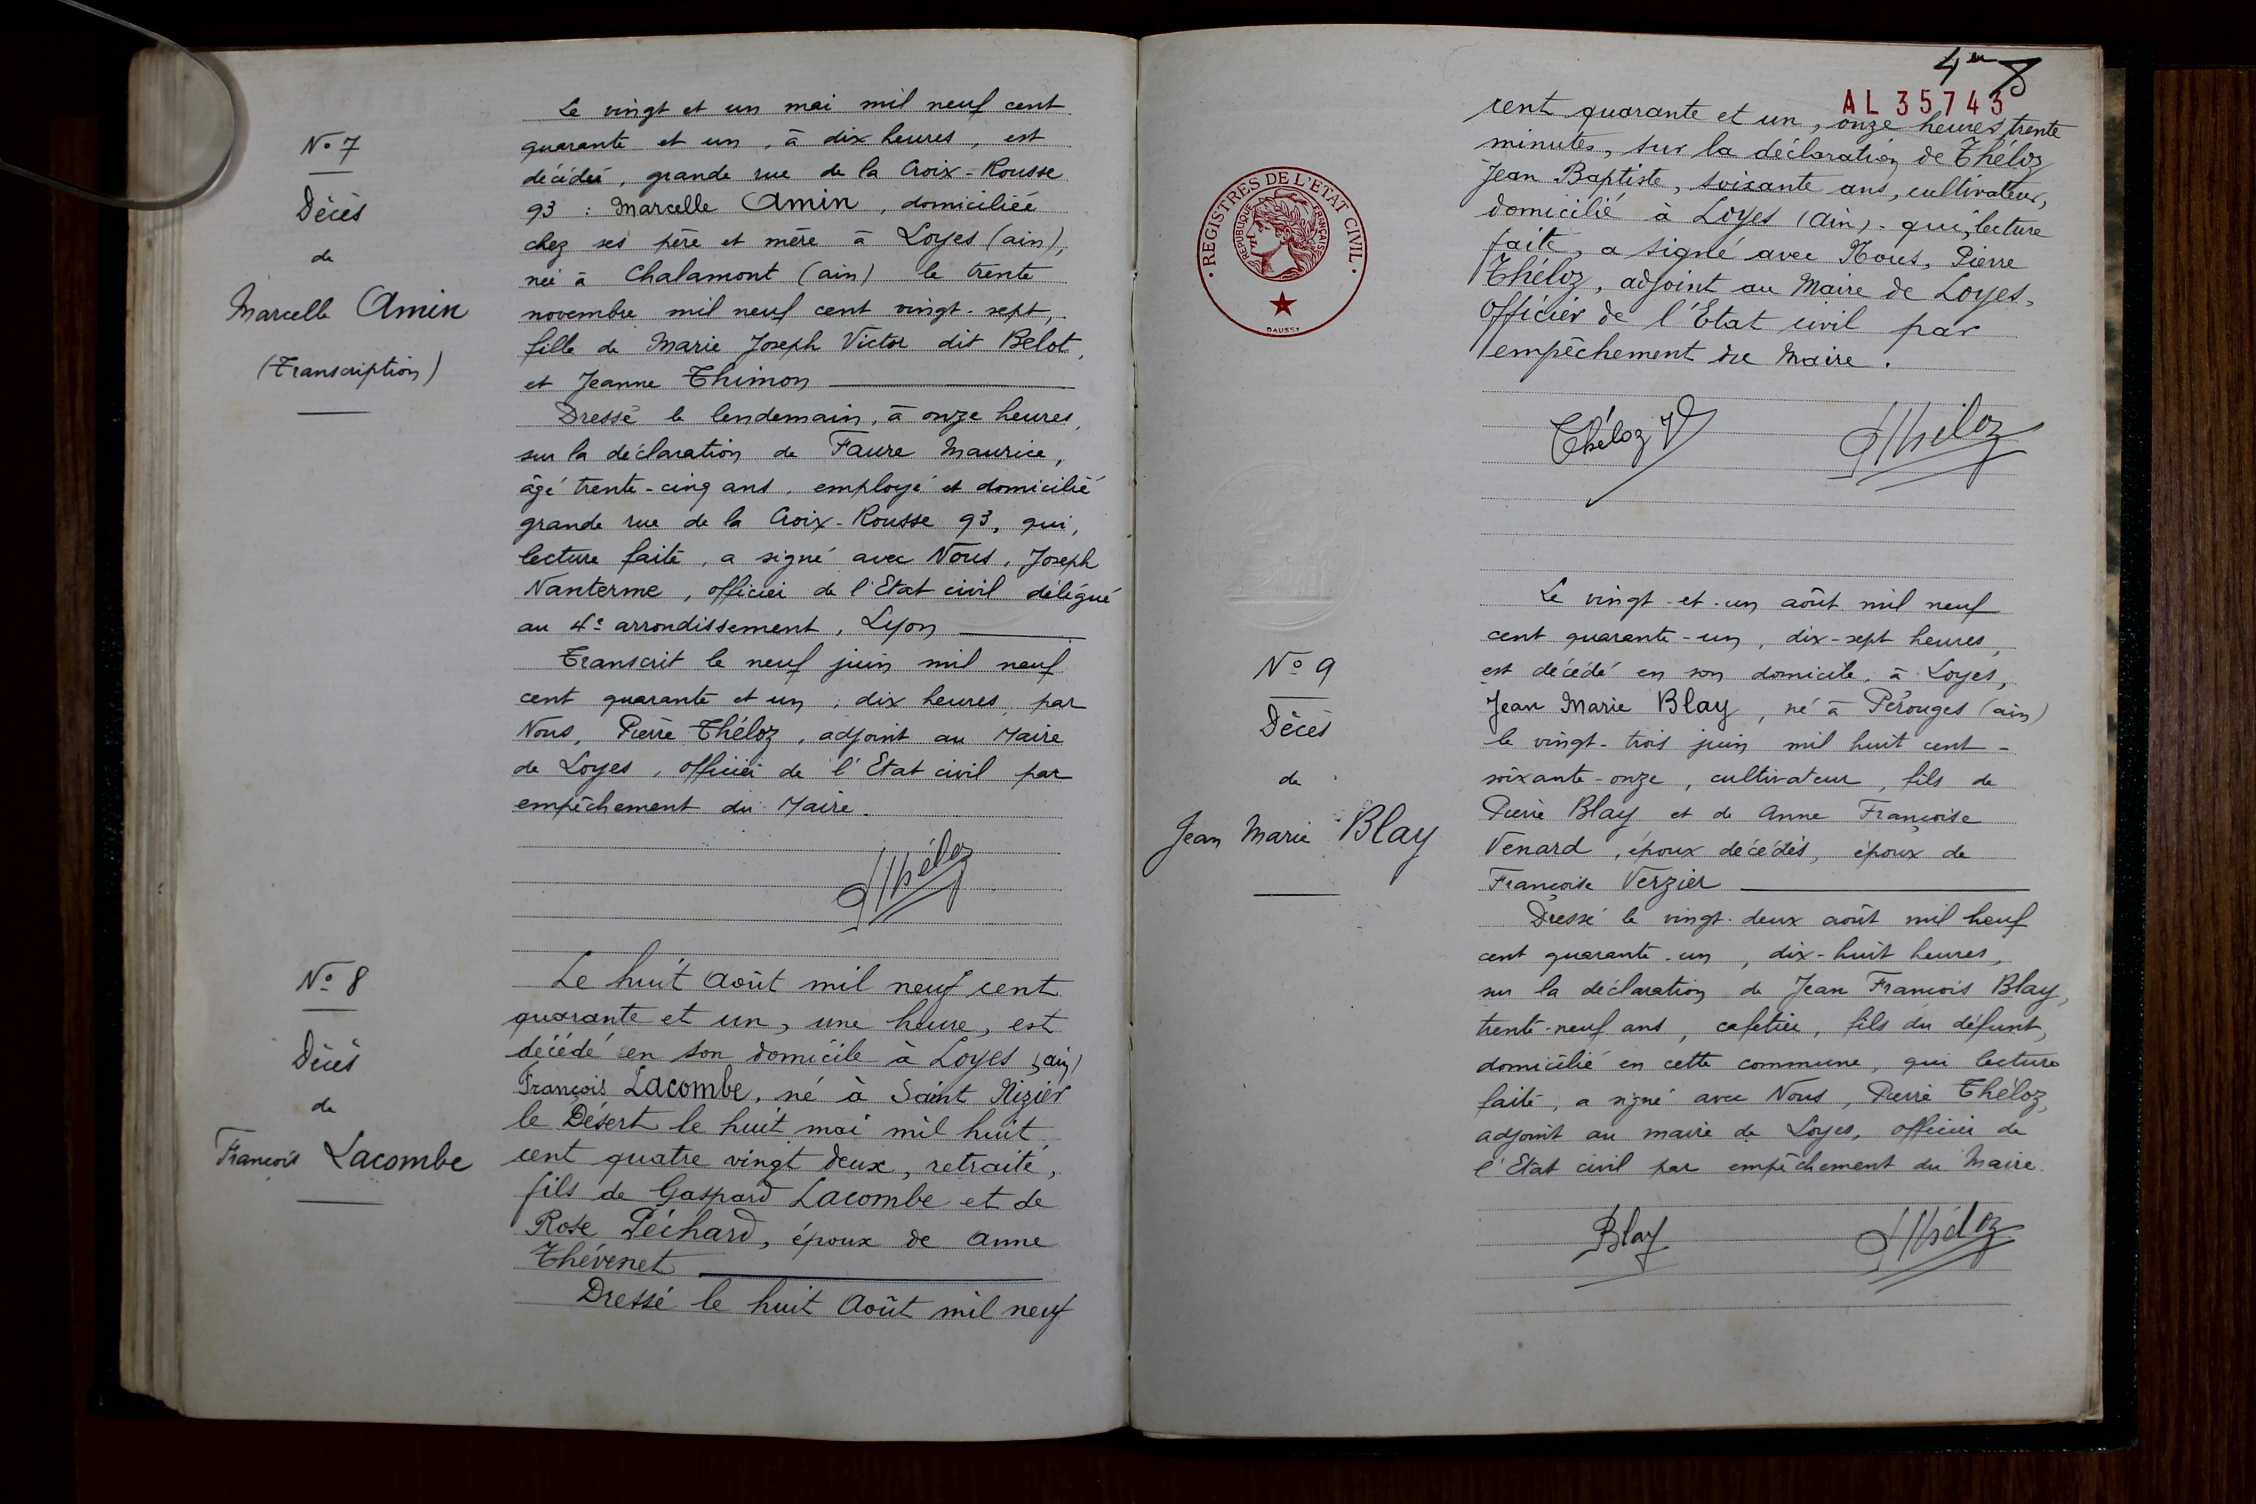 N° 7
Décès
de
Marcelle Amin
(Transcription)
Le vingt et un mai mil neuf cent
quarante et un, à dix heures, est
décédée, grande rue de la Croix-Rousse
93 : Marcelle Amin, domiciliée
chez ses père et mère à Loyes (ain),
née à Chalamont (ain) le trente
novembre mil neuf cent vingt-sept,
fille de Marie Joseph Victor dit Belot,
et Jeanne Thimon
Dressé le lendemain, à onze heures,
sur la déclaration de Faure Maurice,
âgé trente-cinq ans, employé et domicilié
grande rue de la Croix-Rousse 93, qui,
lecture faite, a signé avec Nous, Joseph
Nanterme, officier de l'Etat civil délégué
au 4e arrondissement, Lyon
Transcrit le neuf juin mil neuf
cent quarante et un, dix heures, par
Nous, Pierre Théloz, adjoint au Maire
de Loyes, officier de l'Etat civil par
empêchement du Maire.
PThéloz
N° 8
Décès
de
François Lacombe
Le huit Août mil neuf cent
quarante et un, une heure, est
décédé en son domicile à Loyes (ain)
François Lacombe, né à Saint Nizier
le Désert le huit mai mil huit
cent quatre vingt deux, retraité,
fils de Gaspard Lacombe et de
Rose Péchard, époux de Anne
Thévenet
Dressé le huit Août mil neuf
AL 35743
cent quarante et un, onze heures trente
minutes, sur la déclaration de Théloz
Jean Baptiste, soixante ans, cultivateur,
domicilié à Loyes (ain). qui, lecture
faite, a signé avec Nous, Pierre
Théloz, adjoint au Maire de Loyes,
Officier de l'Etat civil par
empêchement du Maire.
Théloz PThéloz
REGISTRES DE L'ETAT CIVIL
REPUBLIQUE FRANÇAISE
DAUSSY
N° 9
Décès
de
Jean Marie Blay
Le vingt-et-un août mil neuf
cent quarante-un, dix-sept heures,
est décédé en son domicile, à Loyes,
Jean Marie Blay, né à Pérouges (ain)
le vingt-trois juin mil huit cent-
soixante-onze, cultivateur, fils de
Pierre Blay et de Anne Françoise
Venard, époux décédés, époux de
Françoise Verzier
Dressé le vingt-deux août mil neuf
cent quarante-un, dix-huit heures,
sur la déclaration de Jean François Blay,
trente-neuf ans, cafetier, fils du défunt,
domicilié en cette commune, qui lecture
faite, a signé avec Nous, Pierre Théloz,
adjoint au maire de Loyes, officier de
l'Etat civil par empêchement du Maire.
Blay PThéloz